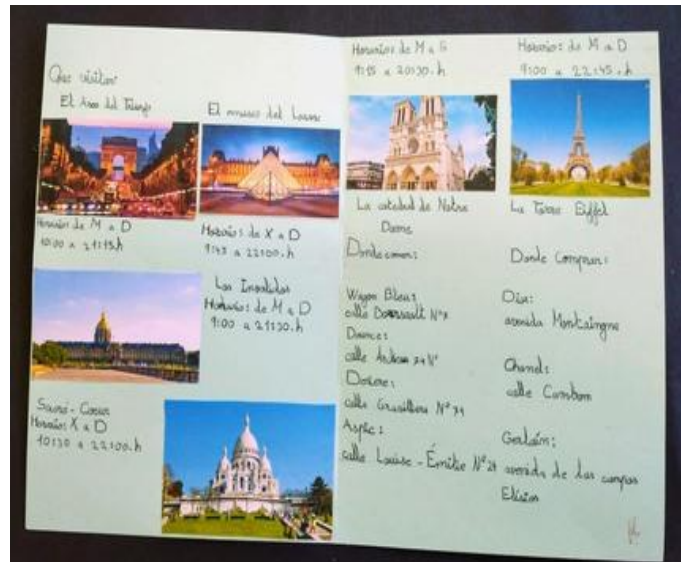 Que visitar:
El Arco del Triunfo
El museo del Louvre
Horarios de M a D
10:00 a 21:15.h
Horario: de X a D
9:45 a 22:00.h
Los Inválidos
Horario: de M a D
9:00 a 21:30.h
Sacré-Coeur
Horario: X a D
10:30 a 22:00.h
Horarios de M a
9:15 a 20:30.h
Horario: de M a D
9:00 a 22:45.h
La catedral de Notre
Dame
La Torre Eiffel
Donde comer:
Wagon Bleu:
calle Nº
calle
calle Nº 71
Aspic:
calle Louise-Émilie Nº 24
Donde Comprar:
Dior:
avenida Montaingne
Chanel:
calle Cambom
avenida de los campos
Elisios